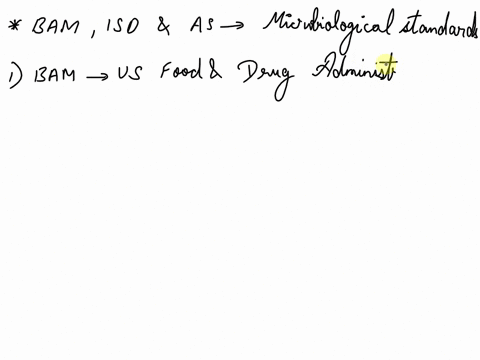 * BAM, ISO & AS → Microbiological standards
1) BAM → US Food & Drug Administ